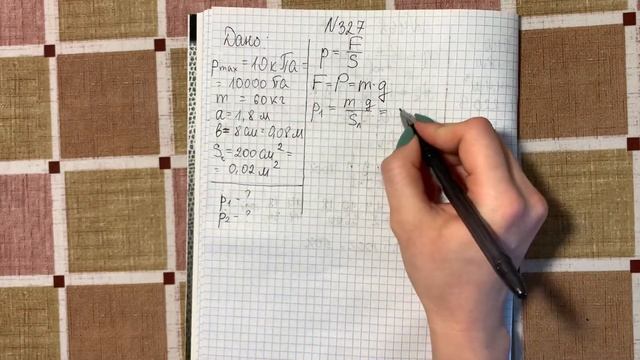 N327
Дано:
pmax = 10кПа =
= 10000 Па
m = 60кг
a = 1,8 м
b = 8 см = 0,08м
Sс = 200 см² =
= 0,02 м²
p1 - ?
p2 - ?
p = F/S
F = P = m·g
p1 = m g/Sл =